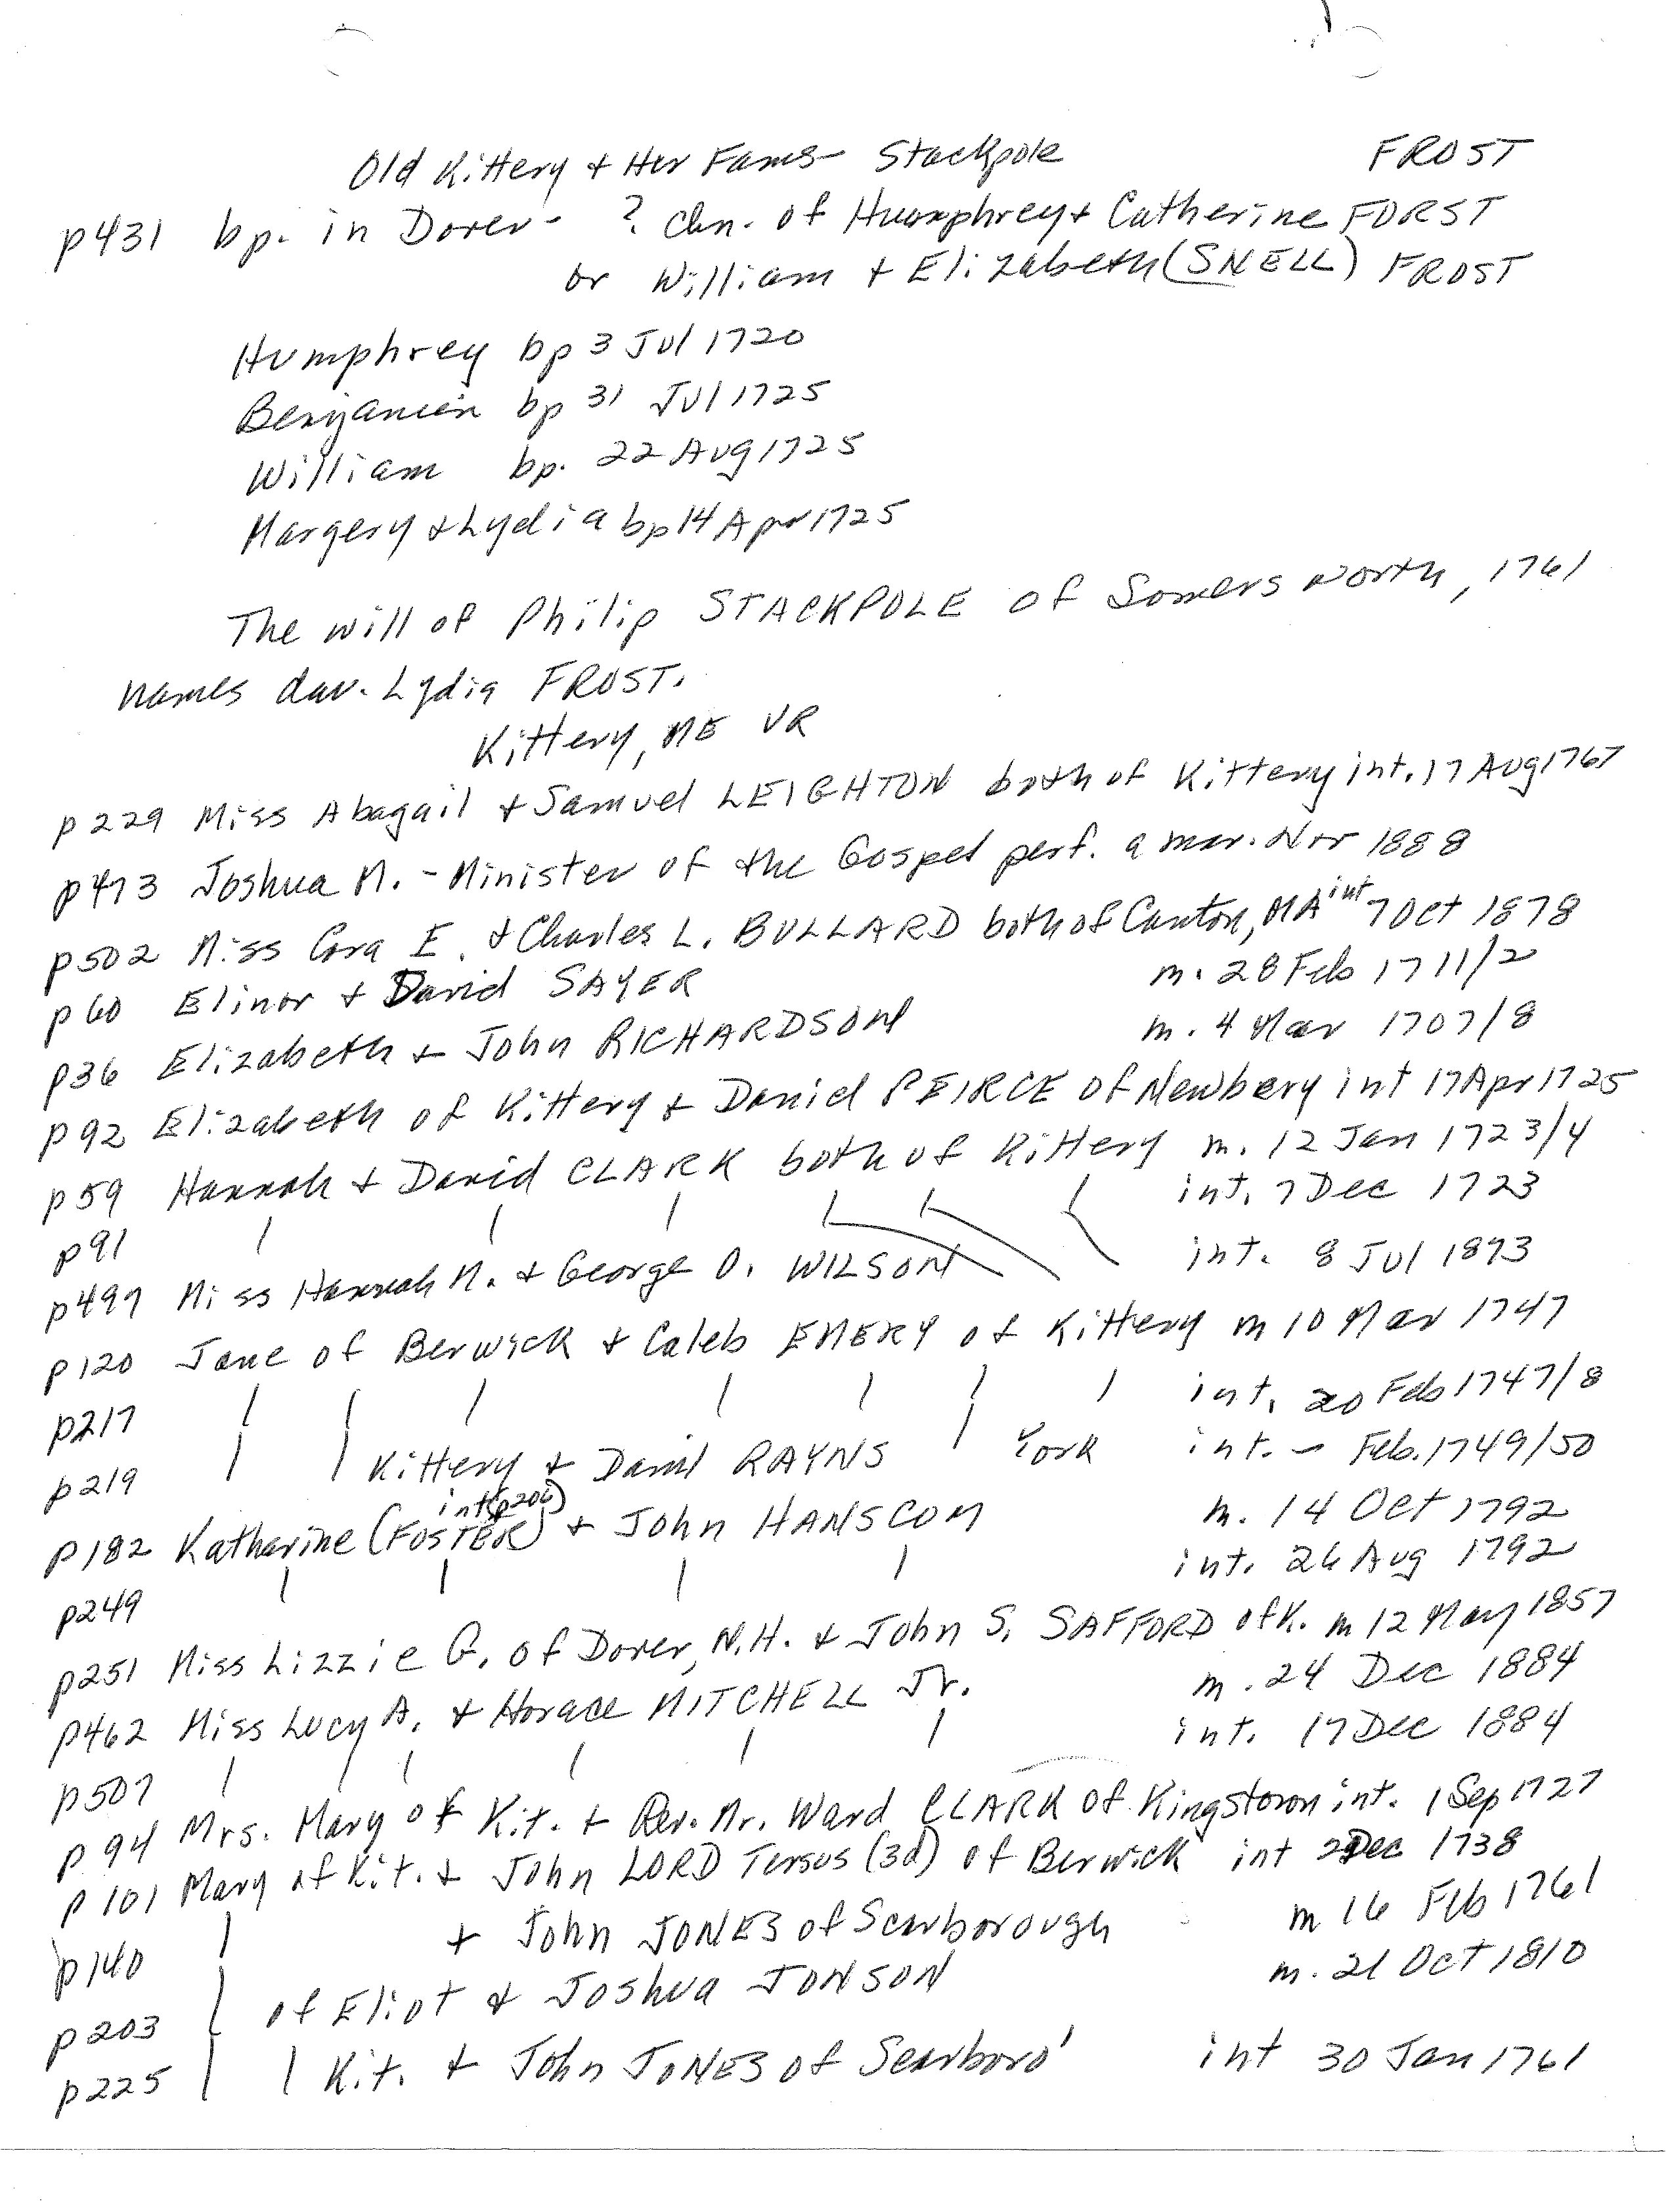 Old Kittery & Her Fams- Stackpole FROST
p431 bp. in Dover - ? chn. of Humphrey & Catherine FORST
or William + Elizabeth (SNELL) FROST
Humphrey bp 3 Jul 1720
Benjamin bp 31 Jul 1725
William bp. 22 Aug 1725
Margery & Lydia bp 14 Apr 1725
The will of Philip STACKPOLE of Somersworth, 1761
names dau. Lydia FROST.
Kittery, ME VR
p229 Miss Abagail + Samuel LEIGHTON both of Kittery int. 17 Aug 1767
p473 Joshua M. - Minister of the Gospel perf. a mar. Nov 1888
p502 Miss Cora E. & Charles L. BULLARD both of Canton, MA int 7 Oct 1878
p60 Elinor + David SAYER m. 28 Feb 1711/2
p36 Elizabeth + John RICHARDSON m. 4 Mar 1707/8
p92 Elizabeth of Kittery + Daniel PEIRCE of Newbery int 17 Apr 1725
p59 Hannah + David CLARK both of Kittery m. 12 Jan 1723/4
p91 int. 7 Dec 1723
p497 Miss Hannah M. + George O. WILSON int. 8 Jul 1873
p120 Jane of Berwick + Caleb EMERY of Kittery m 10 Mar 1747
p217 int. 20 Feb 1747/8
p219 Kittery + Daniel RAYNS York int. - Feb. 1749/50
int (p206)
p182 Katharine (FOSTER) + John HANSCOM m. 14 Oct 1792
p249 int. 26 Aug 1792
p251 Miss Lizzie G. of Dover, N.H. + John S. SAFFORD of K. m 12 May 1857
p462 Miss Lucy A. + Horace MITCHELL Jr. m. 24 Dec 1884
p507 int. 17 Dec 1884
p94 Mrs. Mary of Kit. + Rev. Mr. Ward CLARK of Kingstown int. 1 Sep 1727
p101 Mary of Kit. + John LORD Tersus (3d) of Berwick int 2 Dec 1738
p140 + John JONES of Scarborough m 16 Feb 1761
p203 of Eliot & Joshua JONSON m. 21 Oct 1810
p225 Kit. + John JONES of Scarboro' int 30 Jan 1761